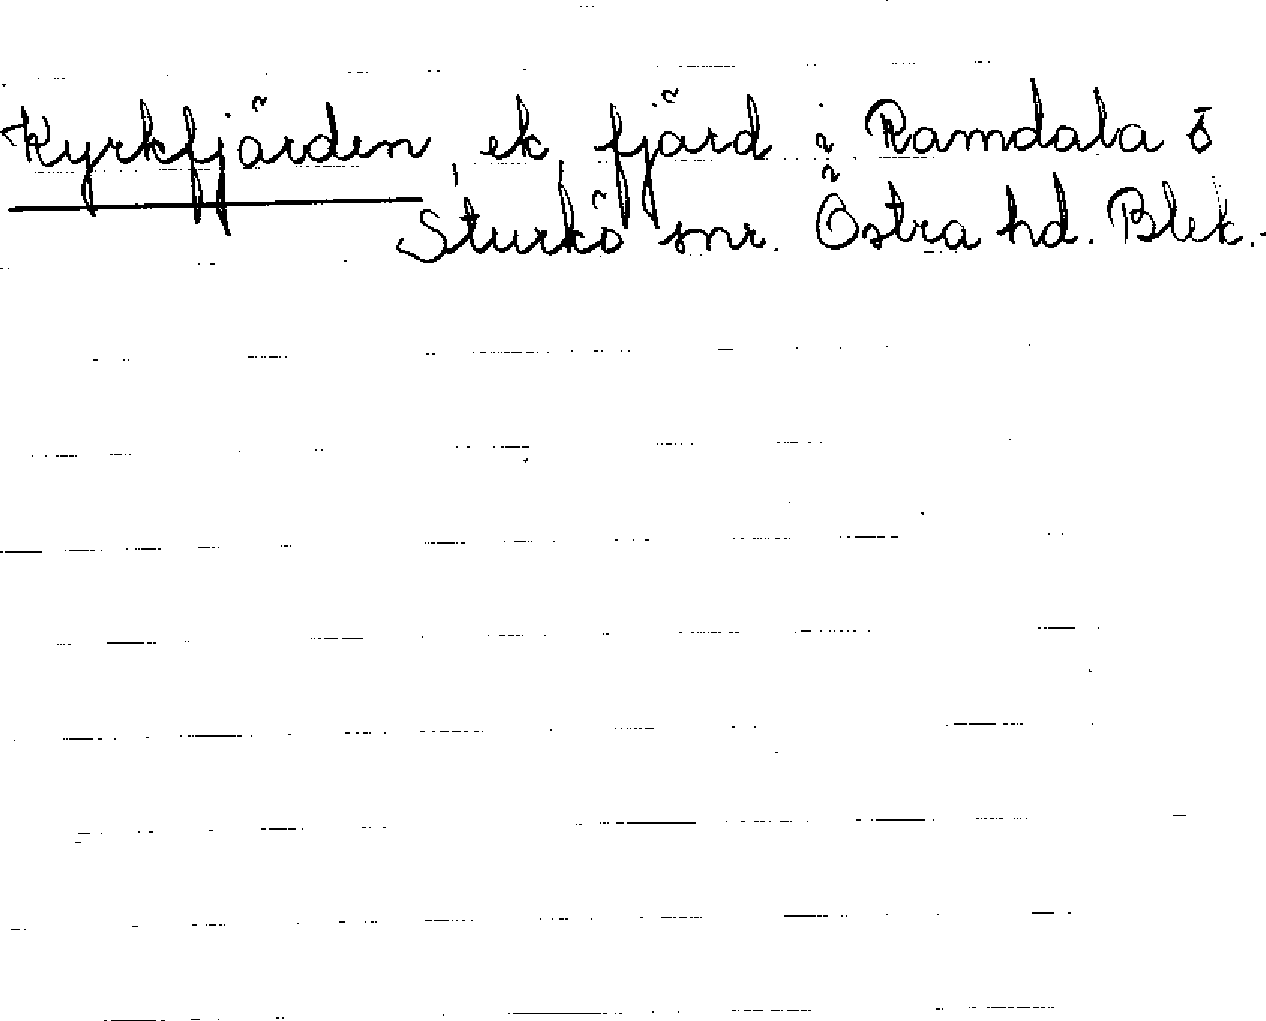 Kyrkfjärden, ek fjärd i Ramdala o
Sturkö snr. Östra hd. Blek.